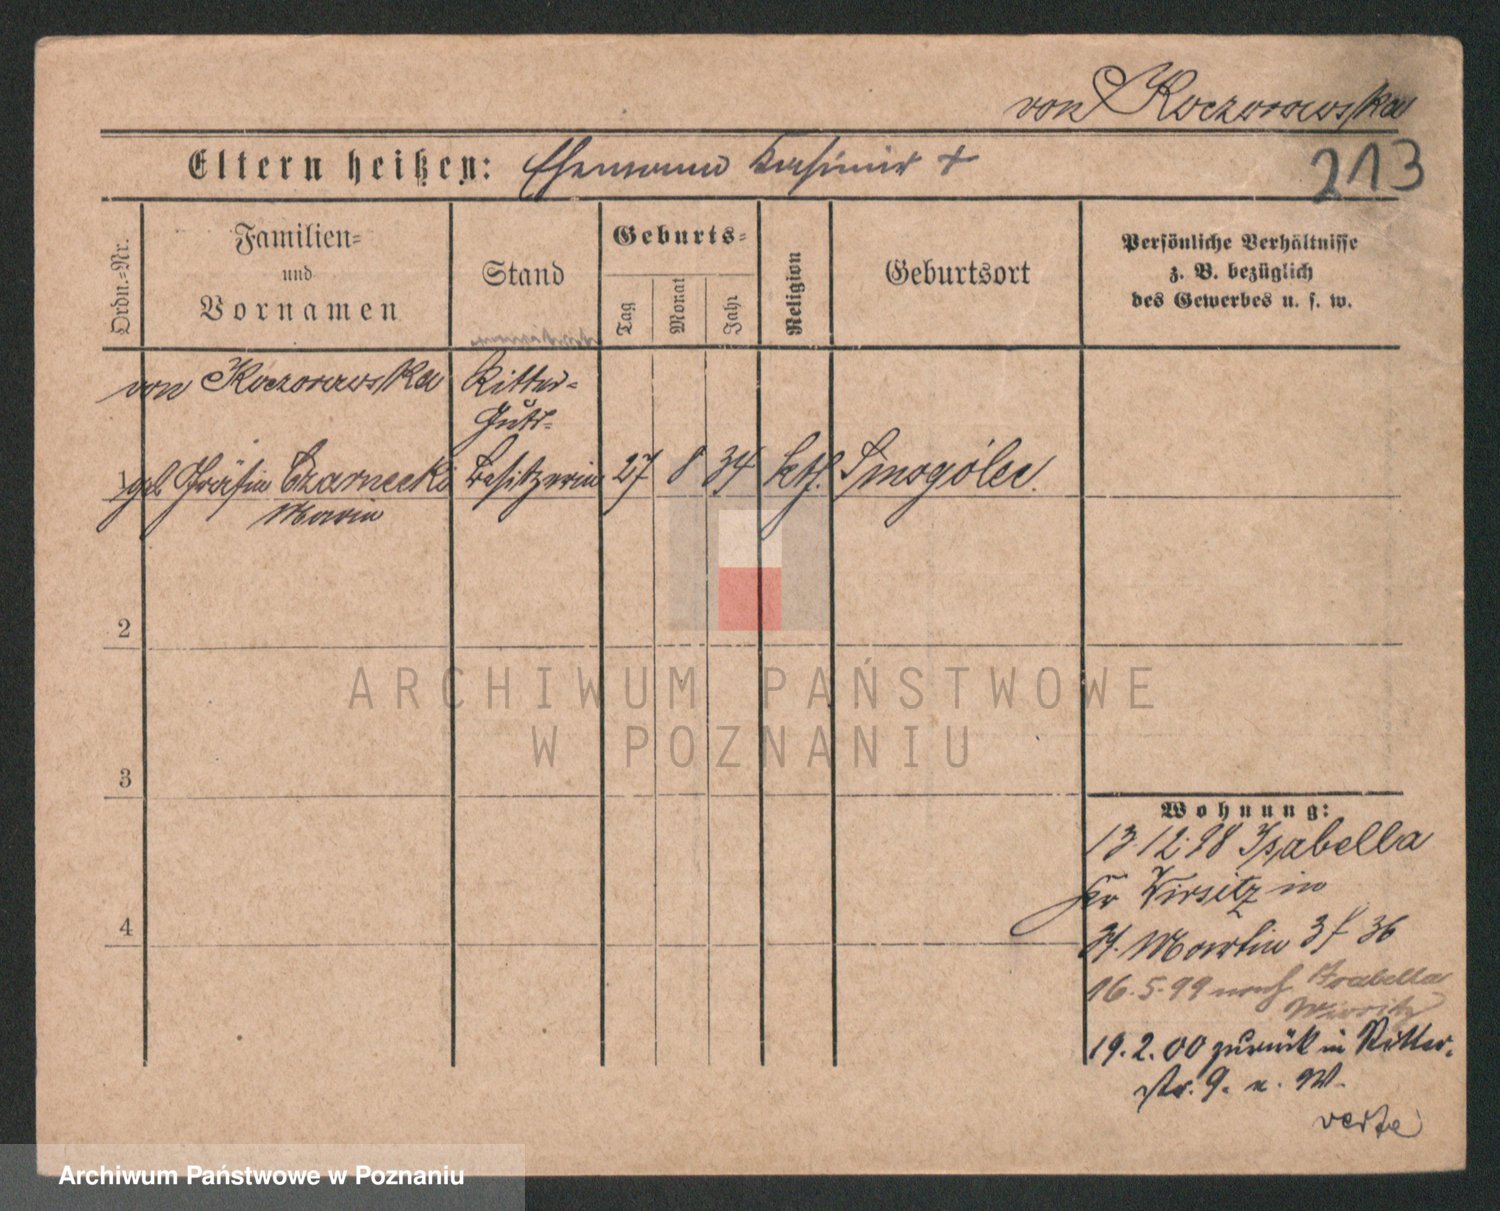 von Koczorowska
Eltern heißen: Ehemann Kasimir +
213
Ordn.-Nr.
Familien-
und
Vornamen
Stand
Geburts-
Tag
Monat
Jahr
Religion
Geburtsort
Persönliche Verhältnisse
z. B. bezüglich
des Gewerbes u. s. w.
von Koczorowska Ritter-
Guts-
1 geb. Gräfin Czarnecki Besitzerin 27 8 34 kth. Smogólec
Maria
2
3
4
Wohnung:
13.12.98 Isabella
Kr Wirsitz in
St. Martin 36
16.5.99 nach Isabella
Wirsitz
19.2.00 zurück in Ritter-
str. 9. a. W.
verte
ARCHIWUM PAŃSTWOWE
W POZNANIU
Archiwum Państwowe w Poznaniu